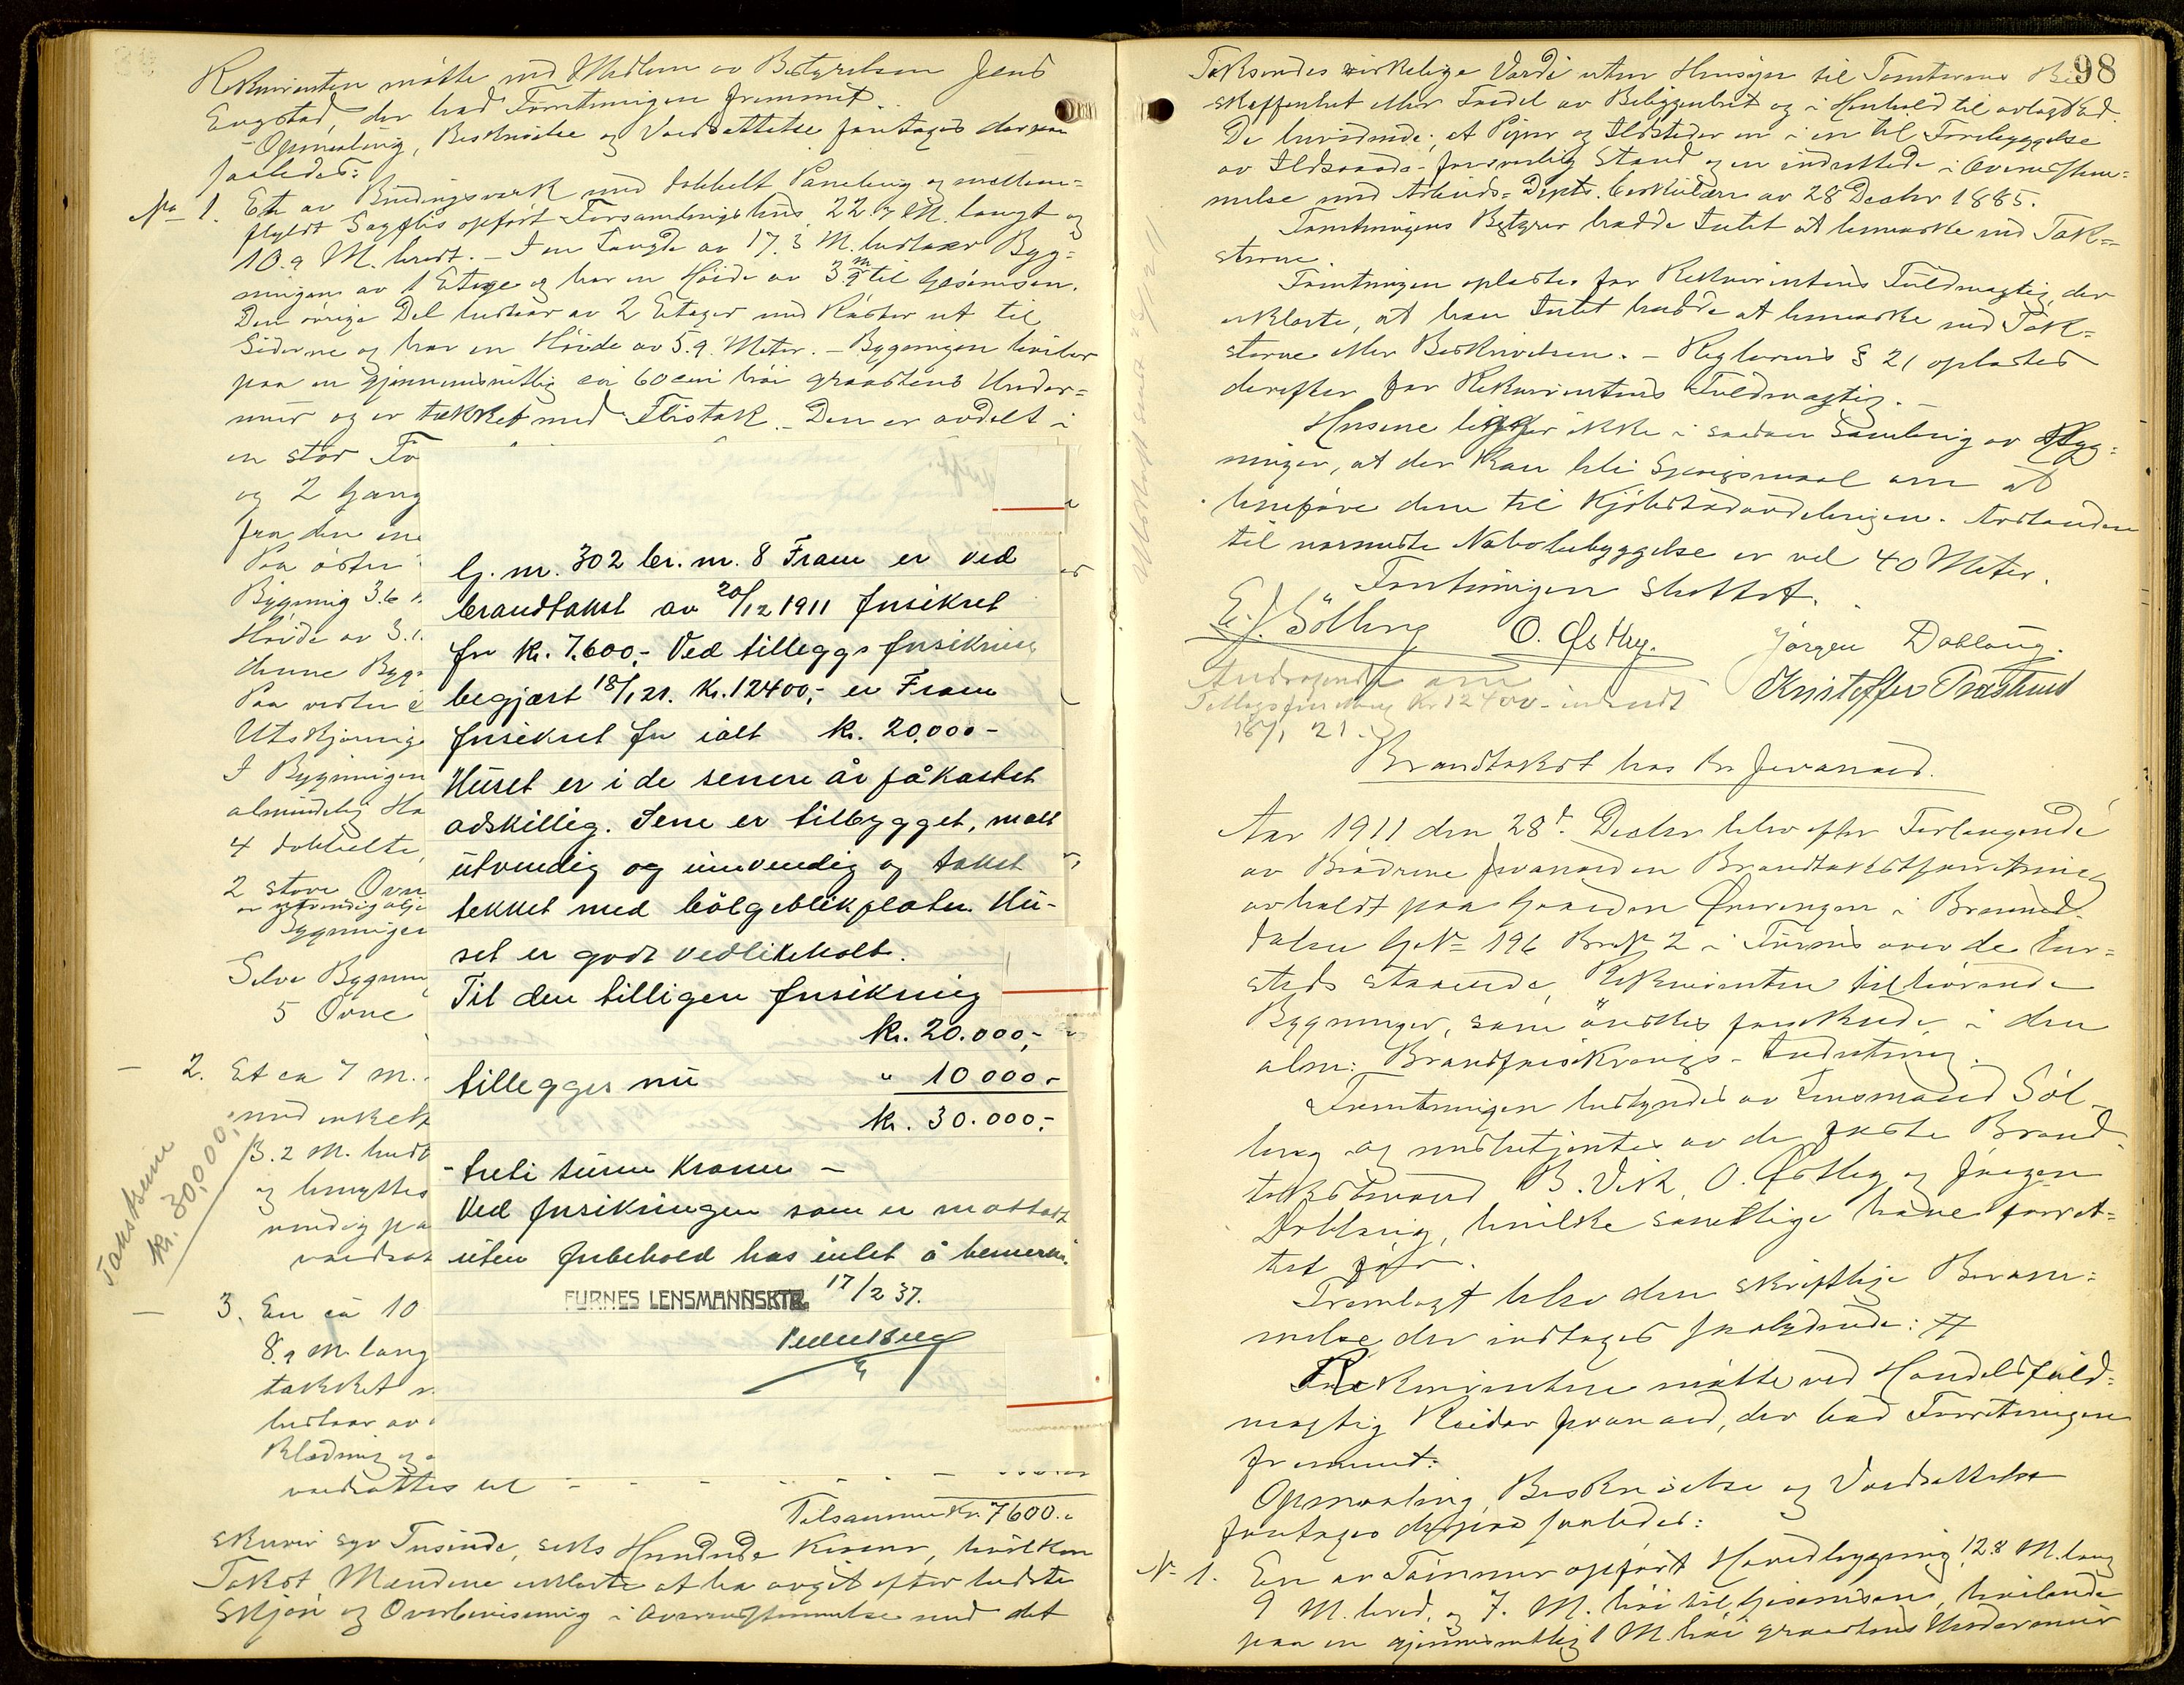 Rekvirenten mötte ved Medlem av Bestyrelsen Jens
Engstad, der bad Forretningen fremmet.
Opmaaling, Beskrivelse og Værdsættelse foretages derpaa
saaledes:
No 1. En av Bindingsverk med dobbelt Paneling og mellem=
flyldt Sagflis opfört Forsamlingshus 22.7 M. langt og
10.9 M. bredt. - I en Længde av 17.3 M. bestaar Byg=
ningen av 1 Etage og har en Höide av 3.9 m til Gesimsen.
Den övrige Del bestaar av 2 Etager med Röster ut til
Siderne og har en Höide av 5.9 Meter. - Bygningen hviler
paa en gjennemsnitlig ca 60 cm höi graastens Under=
mur og er tækket med Flistak. - Den er avdelt i
en stor Fo
og 2 Gang
fra den ene
Paa östre
Bygning 3.6
Höide av 3.1
denne Bygn
Paa vestre
Utskjæring
I Bygningen
almindelig Ha
4 dobbelte,
2 store Ovn
er utvendig olje
Bygningen
Selve Bygnin
5 Ovne
- 2. Et ca 7 m.
med enkelt
3.2 M. bredt
og benyttes
vendig pa
værdsat
Takst
kr. 30,000,-
- 3. En ca 10
8.9 M lang
tækket
bestaar av
Klædning og
værdsættes til - - - -
Tilsammen Kr. 7600.-
skriver syv Tusinde, seks Hundrede Kroner, hvilken
Takst Mændene erklærte at ha avgit efter bedste
Skjön og Overbevisning i Overensstemmelse med det
G. nr. 302 br. nr. 8 Fram er ved
brandtakst av 20/12 1911 forsikret
for kr. 7.600,- Ved tilleggsforsikring
begjært 18/1 21. Kr. 12400,- er Fram
forsikret for ialt kr. 20.000-
Huset er i de senere år påkostet
adskillig. Scene er tilbygget, malt
utvendig og innvendig og taket
tekket med bölgeblikplater. Hu-
set er godt vedlikeholdt.
Til den tilligere forsikring
kr. 20.000,-
tillegges nu " 10 000.-
kr. 30.000,-
- treti tusen kroner -
Ved forsikringen som er mottatt
uten forbehold has intet å bemerke.
FURNES LENSMANNSKTR. 17/2 37.
98
Taksendes virkelige Værdi uten Hensyn til Tomternes Be
skaffenhet eller Fordel av Beliggenhet og i Henhold til avlagt Ed.
De bevidnede, at Piper og Ildsteder er i en til Forebyggelse
av Ildsvaade forsvarlig Stand og er indrettede i Overensstem=
melse med Arbeids-Depts. Cirkulære av 28 Decbr 1885.
Forretningens Bestyrer hadde Intet at bemærke ved Tak=
sterne.
Forretningen oplæstes for Rekvirentens Fuldmægtig, der
erklærte, at han Intet hadde at bemærke ved Tak=
sterne eller Beskrivelsen. - Reglernes § 21 oplæstes
derefter for Rekvirentens Fuldmægtig. -
Husene ligger ikke i saadan Samling av Byg=
ninger, at der kan bli Spörgsmaal om at
henföre dem til Kjöbstadavdelingen. Avstanden
til nærmeste Nabobebyggelse er vel 40 Meter.
Forretningen sluttet.
E. J. Sölberg O. Østby. Jörgen Dobloug.
Kristoffer Præstrud
Andragende om
Tillægsforsikring Kr 12400- indsendt
18/1 21.
Brandtakst hos Br Jevanord.
Aar 1911 den 28d. Decbr blev efter Forlangende
av Brödrene Jevanord en Brandtakstforretning
avholdt paa Gaarden Ørerengen i Brumund=
dalen G.No 196 Br.No 2 i Furnes over de der=
steds staaende, Rekvirenten tilhörende
Bygninger, som önskes forsikrede i den
alm: Brandforsikrings-Indretning.
Forretningen bestyredes av Lensmand Söl=
berg og medbetjentes av de faste Brand=
takstmænd B. Vik, O. Østby og Jörgen
Dobloug, hvilke samtlige have forret=
tet för.
Fremlagt blev den skriftlige Beram=
melse, der indtages saalydende: #
Rekvirentene mötte ved Handelsfuld=
mægtig Reidar Jevanord, der bad Forretningen
fremmet.
Opmaaling, Beskrivelse og Værdsættelse
foretages derpaa saaledes:
No 1. En av Tömmer opfört Hovedbygning 12.8 M. lang
9 M. bred, og 7. M. höi til Gesimsens, hvilende
paa en gjennemsnitlig 1 M. höi graastens Undermur